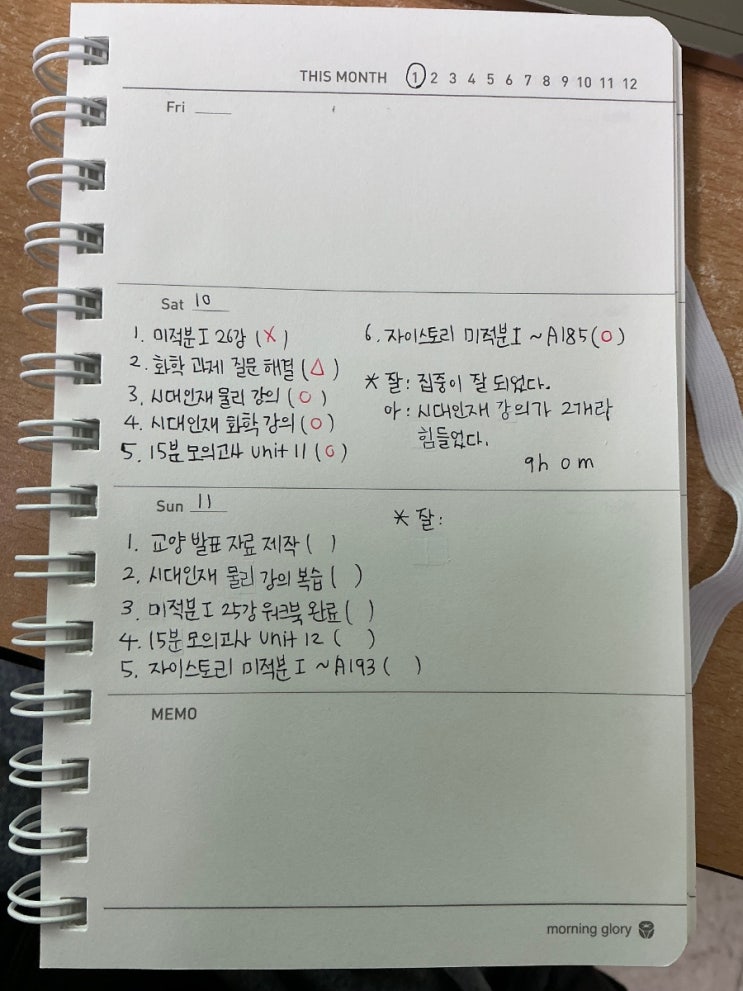 THIS MONTH 1 2 3 4 5 6 7 8 9 10 11 12
Fri
Sat 10
1. 미적분I 26강 (X)
2. 화학 과제 질문 해결 (△)
3. 시대인재 물리 강의 (O)
4. 시대인재 화학 강의 (O)
5. 15분 모의고사 Unit 11 (O)
6. 자이스토리 미적분I ~A185(O)
* 잘: 집중이 잘 되었다.
아: 시대인재 강의가 2개라
힘들었다.
9h 0m
Sun 11
1. 교양 발표 자료 제작 ( )
2. 시대인재 물리 강의 복습 ( )
3. 미적분I 25강 워크북 완료 ( )
4. 15분 모의고사 Unit 12 ( )
5. 자이스토리 미적분I ~A193 ( )
* 잘:
MEMO
morning glory